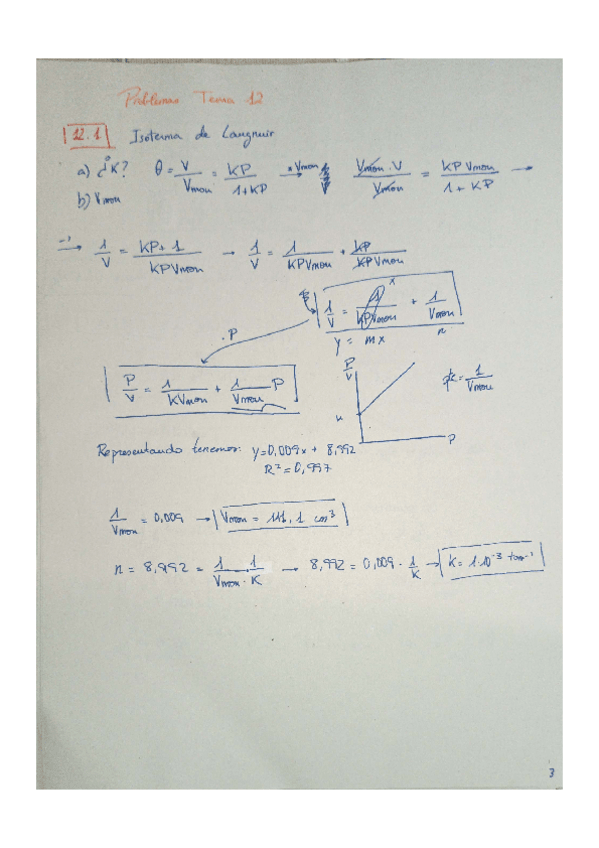 Problemas Tema 12
12.1 Isoterma de Langmuir
a) ¿K? θ = V/Vmon = KP/1+KP → ·Vmon Vmon · V/Vmon = KP Vmon/1 + KP →
b) Vmon
-1 → 1/V = KP+1/KPVmon → 1/V = 1/KPVmon + KP/KPVmon
1/V = 1/KPVmon + 1/Vmon
x
y = mx n
· P
P/V = 1/KVmon + 1/Vmon P
P/V
n
P
= 1/Vmon
Representando tenemos: y=0,009x + 8,992
R² = 0,997
1/Vmon = 0,009 → Vmon = 111,1 cm³
n = 8,992 = 1/Vmon · 1/K → 8,992 = 0,009 · 1/K → K = 1·10⁻³ torr⁻¹
3